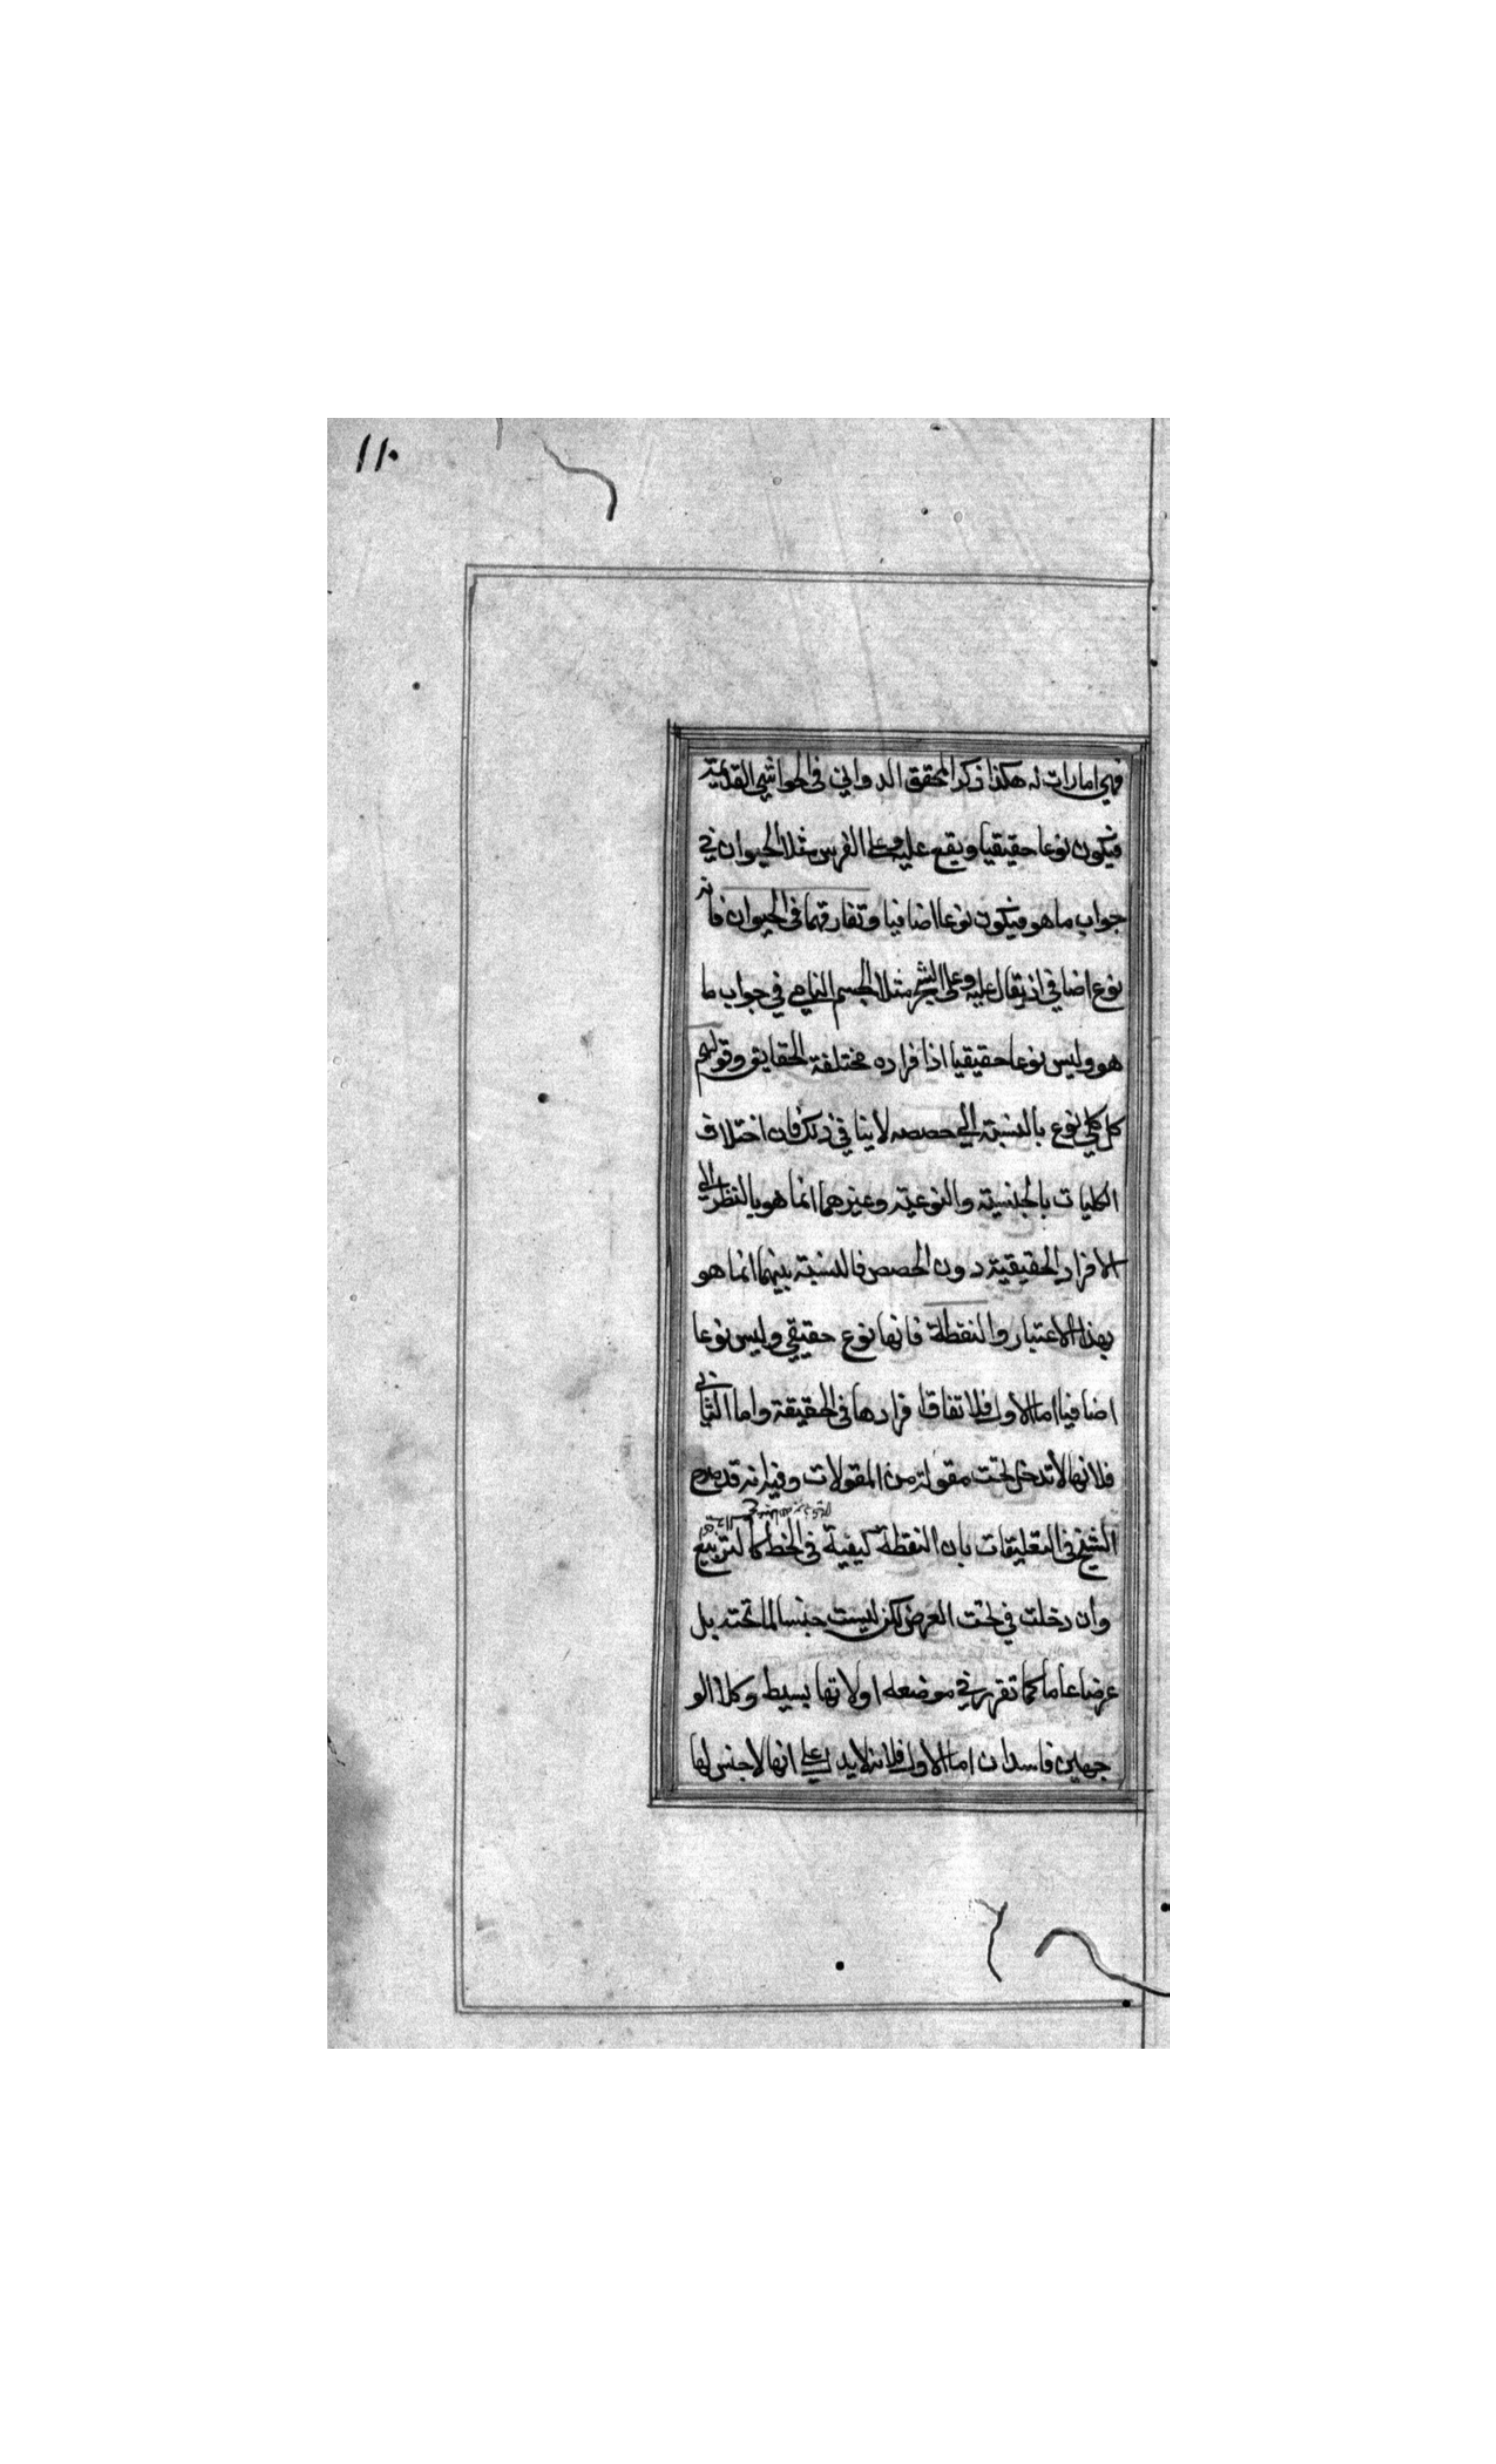 ١١٠
فهي امارات له هكذا ذكر المحقق الدواني في الحواشي القديمة
فيكون نوعا حقيقيا ويقع عليه وعلى الفرس مثلا الحيوان في
جواب ما هو فيكون نوعا اضافيا وتفارقهما في الحيوان فانه
نوع اضافي اذ يقال عليه وعلى الشجر مثلا الجسم النامي في جواب ما
هو وليس نوعا حقيقيا اذ افراده مختلفة الحقايق وقولهم
كل كلي نوع بالنسبة الي حصصه لا ينافي ذلك فان اختلاف
الكليات بالجنسية والنوعية وغيرهما انما هو بالنظر الي
الافراد الحقيقية دون الحصص فالنسبة بينهما انما هو
بهذا الاعتبار والنقطة فانها نوع حقيقي وليس نوعا
اضافيا اما الاول فلاتفاق افرادها في الحقيقة واما الثاني
فلانها لا تدخل تحت مقولة من المقولات وفيه انه قد صرح
الشيخ في التعليقات بان النقطة كيفية في الخط كالتربيع
وان دخلت في تحت العرض لكن ليست جنسا لما تحته بل
عرضا عاما كما تقرر في موضعه او لانها بسيط وكلا الو
جهين فاسدان اما الاول فلانه لا يدل علي انها لا جنس لها